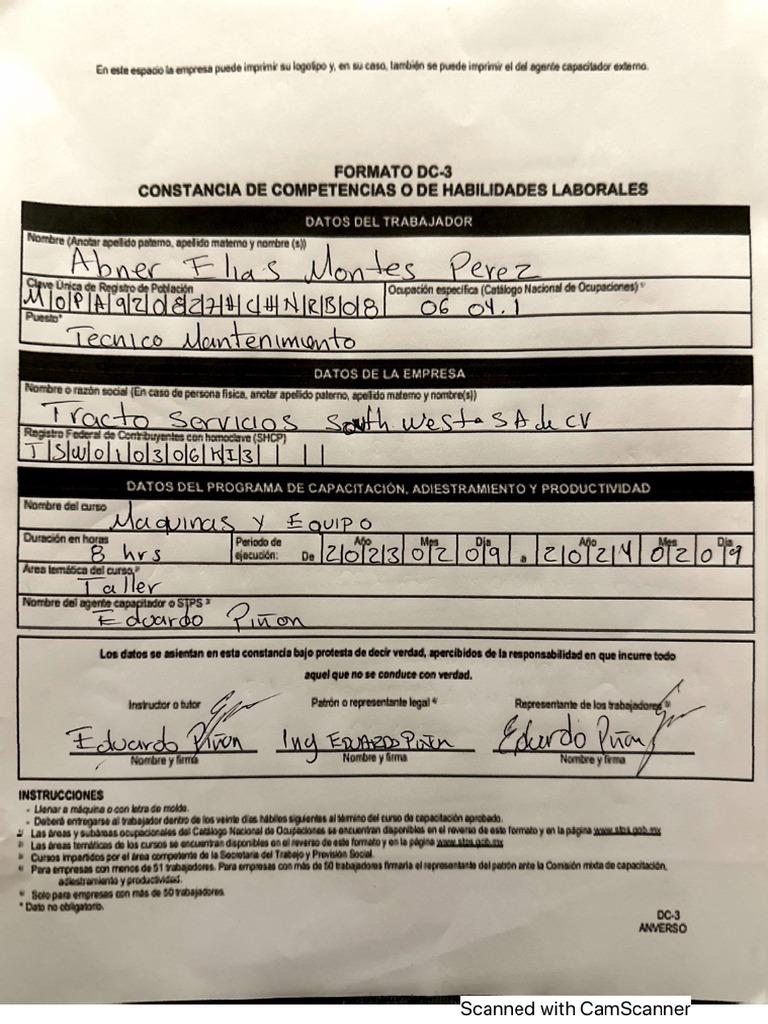 En este espacio la empresa puede imprimir su logotipo y, en su caso, también se puede imprimir el del agente capacitador externo.
FORMATO DC-3
CONSTANCIA DE COMPETENCIAS O DE HABILIDADES LABORALES
DATOS DEL TRABAJADOR
Nombre (Anotar apellido paterno, apellido materno y nombre (s))
Abner Elias Montes Perez
Clave Única de Registro de Población Ocupación específica (Catálogo Nacional de Ocupaciones) 1/
MOPA920827HCHNRB08 06 04.1
Puesto*
Tecnico Mantenimiento
DATOS DE LA EMPRESA
Nombre o razón social (En caso de persona física, anotar apellido paterno, apellido materno y nombre(s))
Tracto Servicios South West SA de CV
Registro Federal de Contribuyentes con homoclave (SHCP)
TSW010306KI3
DATOS DEL PROGRAMA DE CAPACITACIÓN, ADIESTRAMIENTO Y PRODUCTIVIDAD
Nombre del curso
Maquinas y Equipo
Duración en horas Periodo de ejecución: Año Mes Dia Año Mes Dia
8 hrs De 2023 02 09 a 2024 02 09
Área temática del curso 2/
Taller
Nombre del agente capacitador o STPS 3/
Eduardo Piñon
Los datos se asientan en esta constancia bajo protesta de decir verdad, apercibidos de la responsabilidad en que incurre todo
aquel que no se conduce con verdad.
Instructor o tutor Patrón o representante legal 4/ Representante de los trabajadores 5/
Eduardo Piñon Ing Eduardo Piñon Eduardo Piñon
Nombre y firma Nombre y firma Nombre y firma
INSTRUCCIONES
- Llenar a máquina o con letra de molde.
- Deberá entregarse al trabajador dentro de los veinte días hábiles siguientes al término del curso de capacitación aprobado.
1/ Las áreas y subáreas ocupacionales del Catálogo Nacional de Ocupaciones se encuentran disponibles en el reverso de este formato y en la página www.stps.gob.mx
2/ Las áreas temáticas de los cursos se encuentran disponibles en el reverso de este formato y en la página www.stps.gob.mx
3/ Cursos impartidos por el área competente de la Secretaría del Trabajo y Previsión Social.
4/ Para empresas con menos de 51 trabajadores. Para empresas con más de 50 trabajadores firmaría el representante del patrón ante la Comisión mixta de capacitación,
adiestramiento y productividad.
5/ Solo para empresas con más de 50 trabajadores.
* Dato no obligatorio.
DC-3
ANVERSO
Scanned with CamScanner